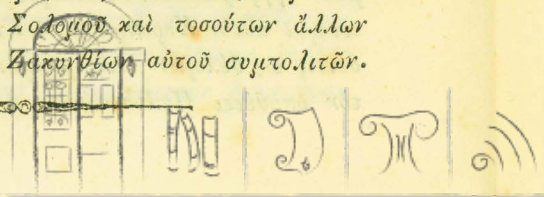 Σολομοῦ καὶ τοσούτων ἄλλων
Ζακυνθίων αὐτοῦ συμπολιτῶν.